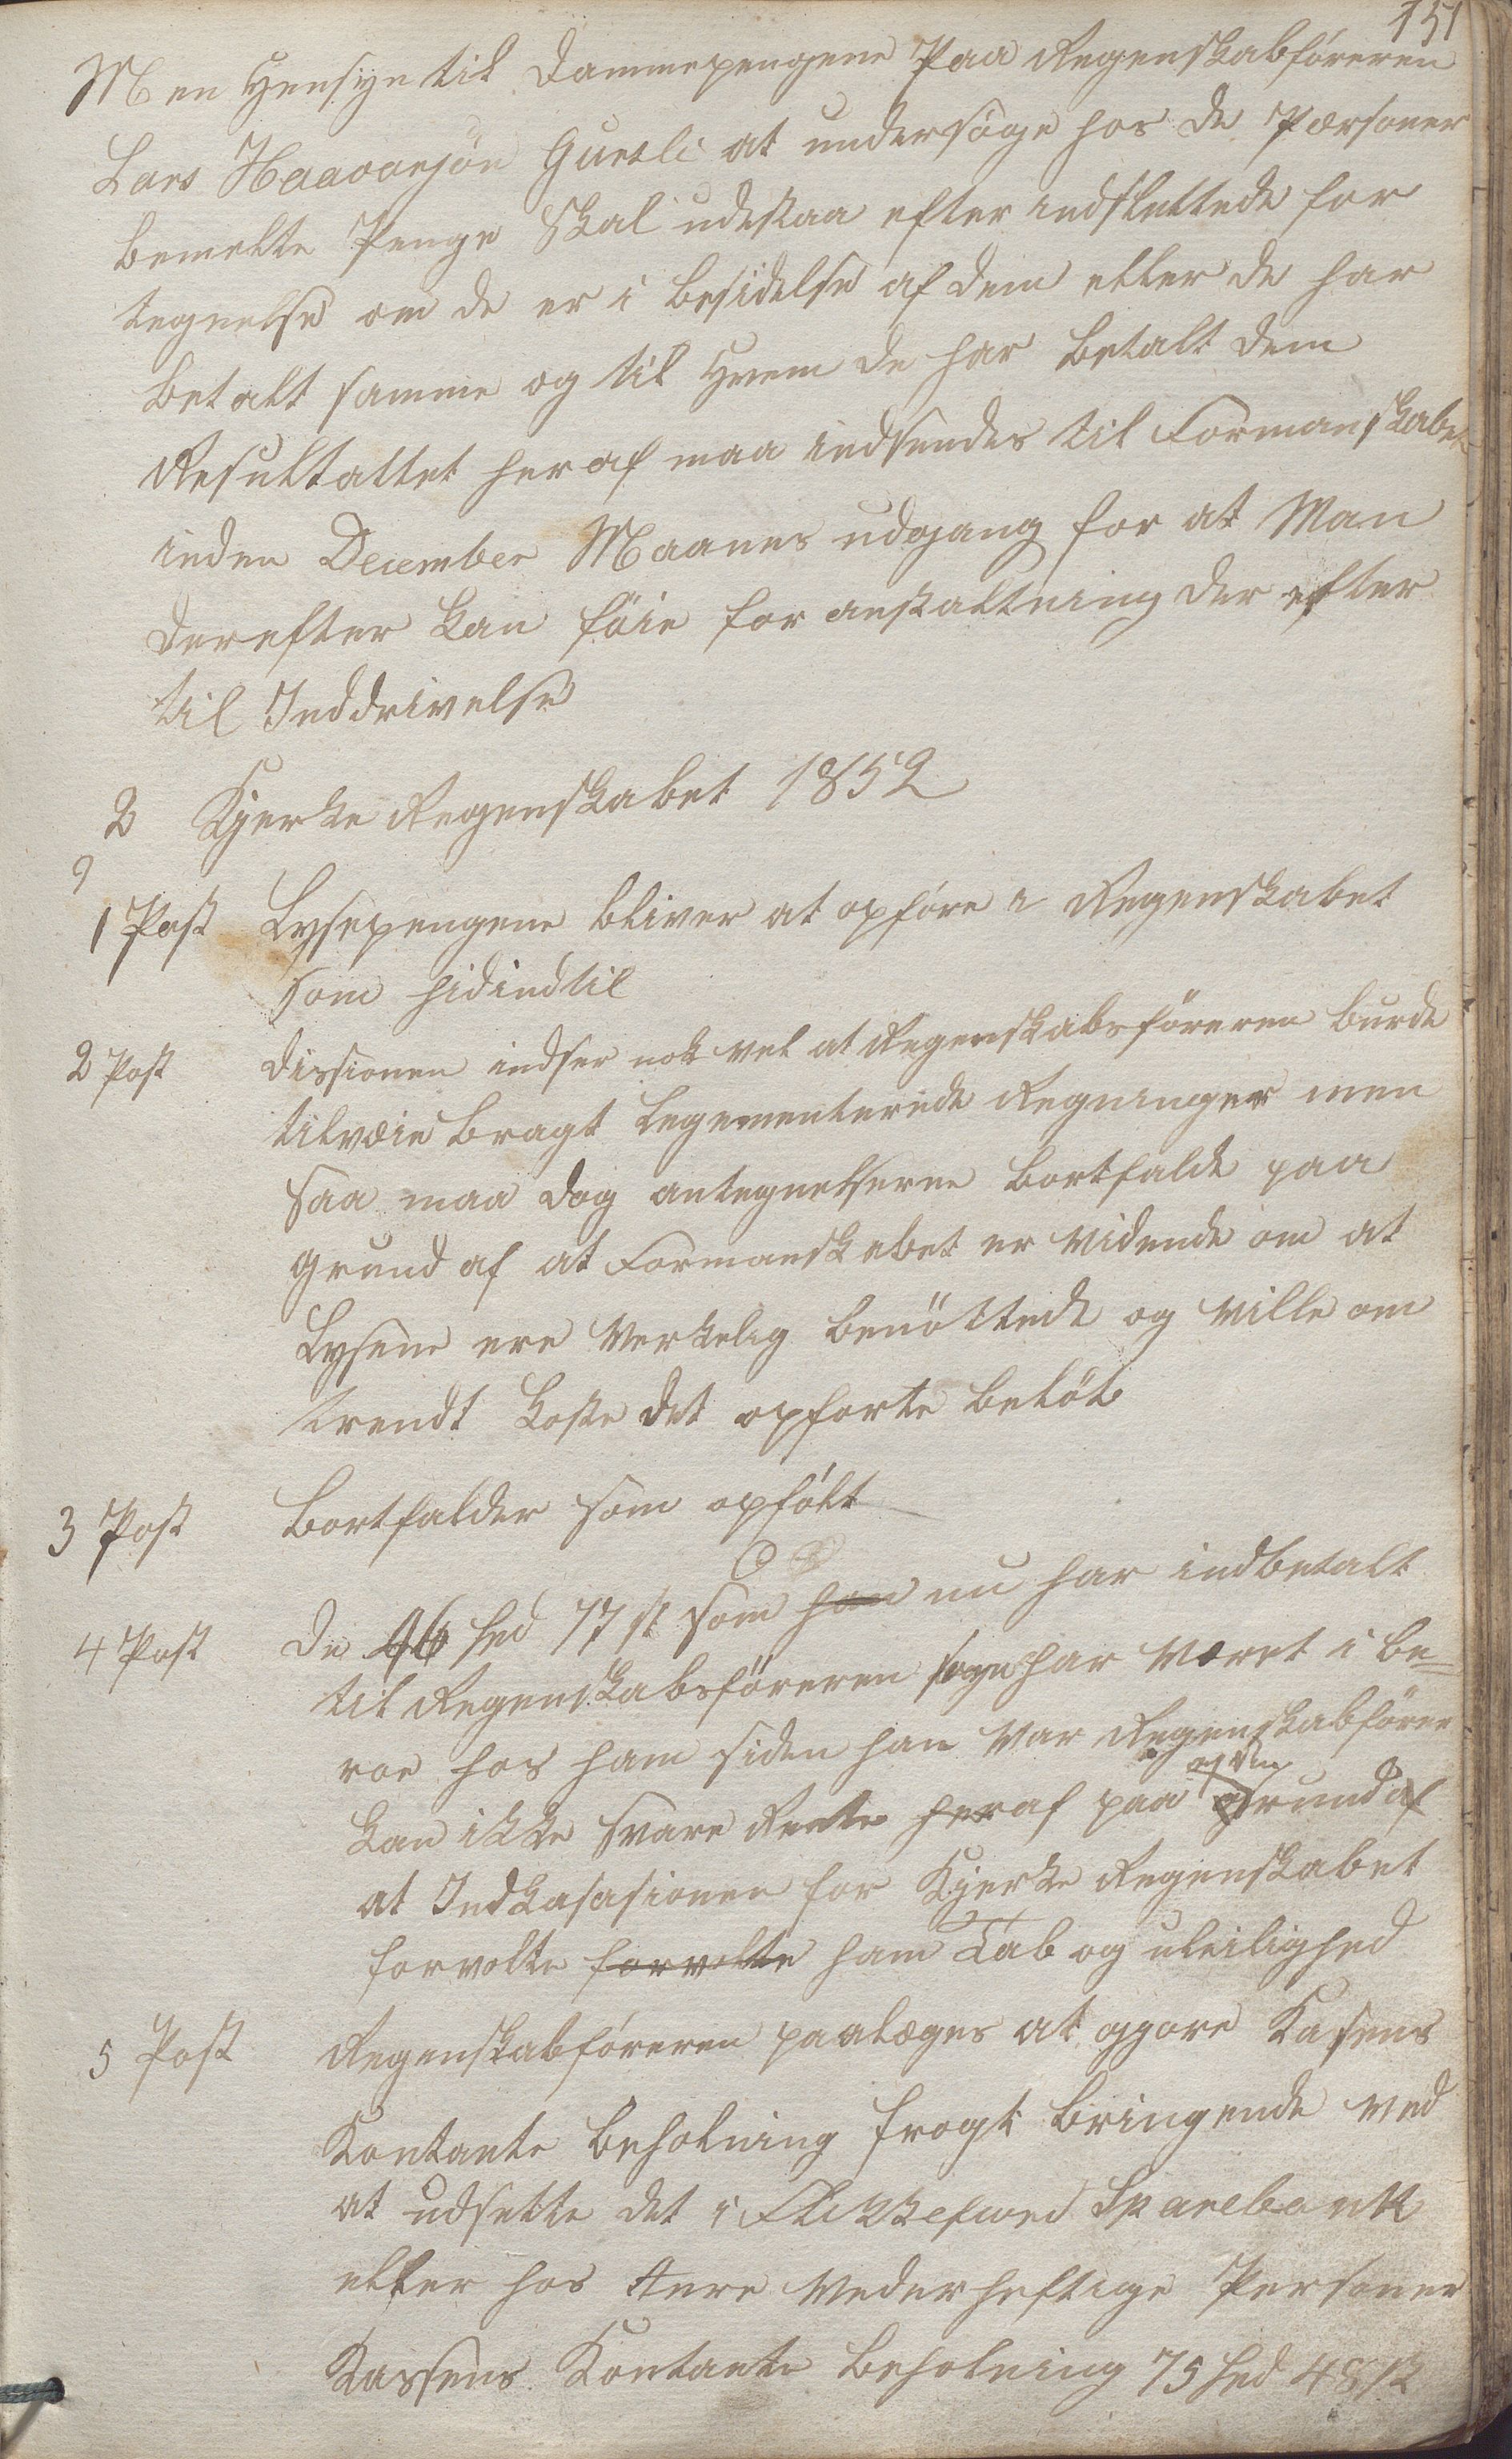 151
Men Hensyn til Dammepengene Paa Regenskabföreren
Lars Haavarsjön Guesli at undersöge hos de Pærsoner
bemelte Penge Skal udestaa efter indstkettede for
tegnelse om de er i besidelse af dem eller de har
betalt samme og til Hvem de har betalt dem
Resultattet her af maa indsendes til Formanskabet
inden December Maanes udgang for at Man
derefter kan föie for anstaltning der efter
til Inddrivelse
2 Kjerke Regenskabet 1852
1 Post Lysepengene bliver at opföre i Regenskabet
som hidindtil
2 Post Dissionen indser nok vel at Regenskabsföreren burde
tilvæie bragt Legementerede Regninger men
saa maa dog antegnelserne bortfalde paa
grund af at Formanskabet er vidende om at
Lysene ere Verkelig benöttede og ville om
trendt koste det opforte belöb
3 Post Bortfalder som opfölt
4 Post De 46 Spd 77 s som han nu har indbetalt
til Regenskabsföreren har været i be=
roe hos ham siden han var Regenskabförer
kan ikke svare Rente heraf paa grund af
at Indkasasionen for Kjerke Regenskabet
forvolte forvolte ham Tab og uleilighed
5 Post Regenskabföreren paalæges at gjøre Kasens
Kontante beholning frogt bringende ved
at udsette det i Flekkefiord Sparebank
eller hos Anre Vederheftige Personer
Kassens Kontante beholning 75 Spd 48 s